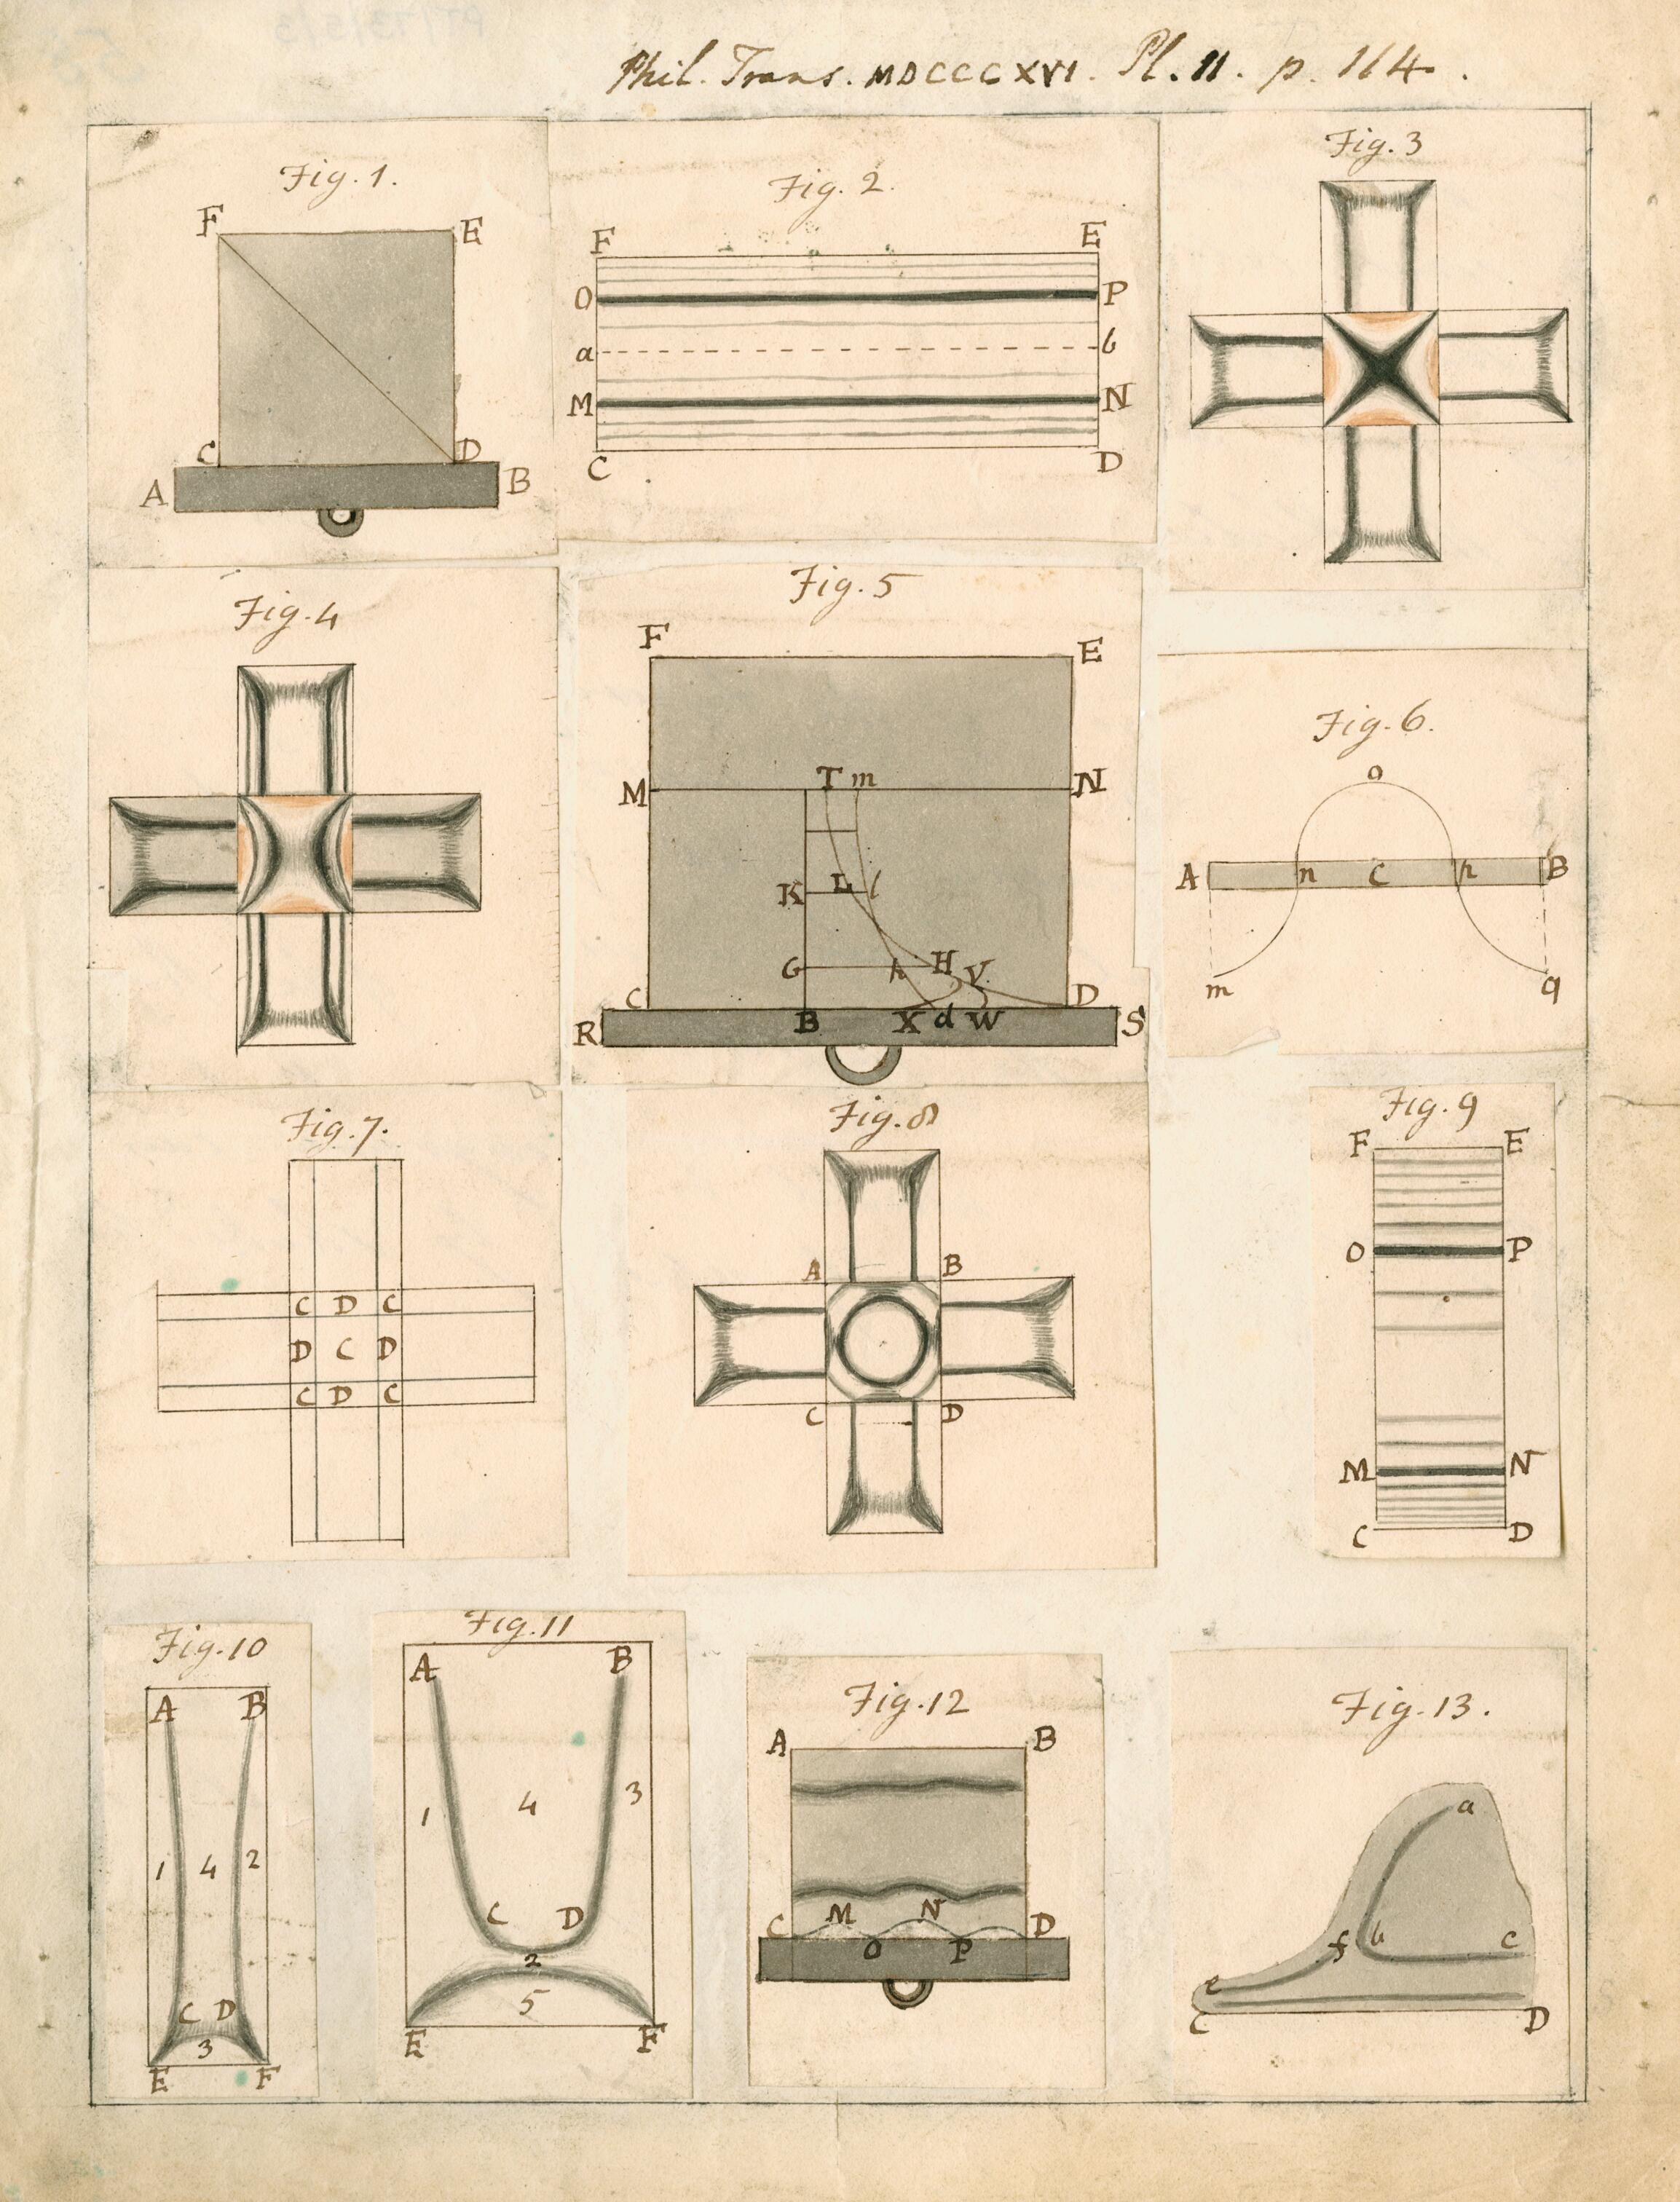 Phil. Trans. MDCCCXVI. Pl. 11. p. 114.
Fig. 1.
F E
C D
A B
Fig. 2.
F E
O P
a b
M N
C D
Fig. 3
Fig. 4
Fig. 5
F E
M T m N
K L l
G h H V
C D
R B X d W S
Fig. 6.
o
A n C p B
m q
Fig. 7.
C D C
D C D
C D C
Fig. 8
A B
C D
Fig. 9
F E
O P
M N
C D
Fig. 10
A B
1 4 2
C D
3
E F
Fig. 11
A B
1 4 3
C D
2
5
E F
Fig. 12
A B
C M N D
O P
Fig. 13.
a
f b c
e
C D